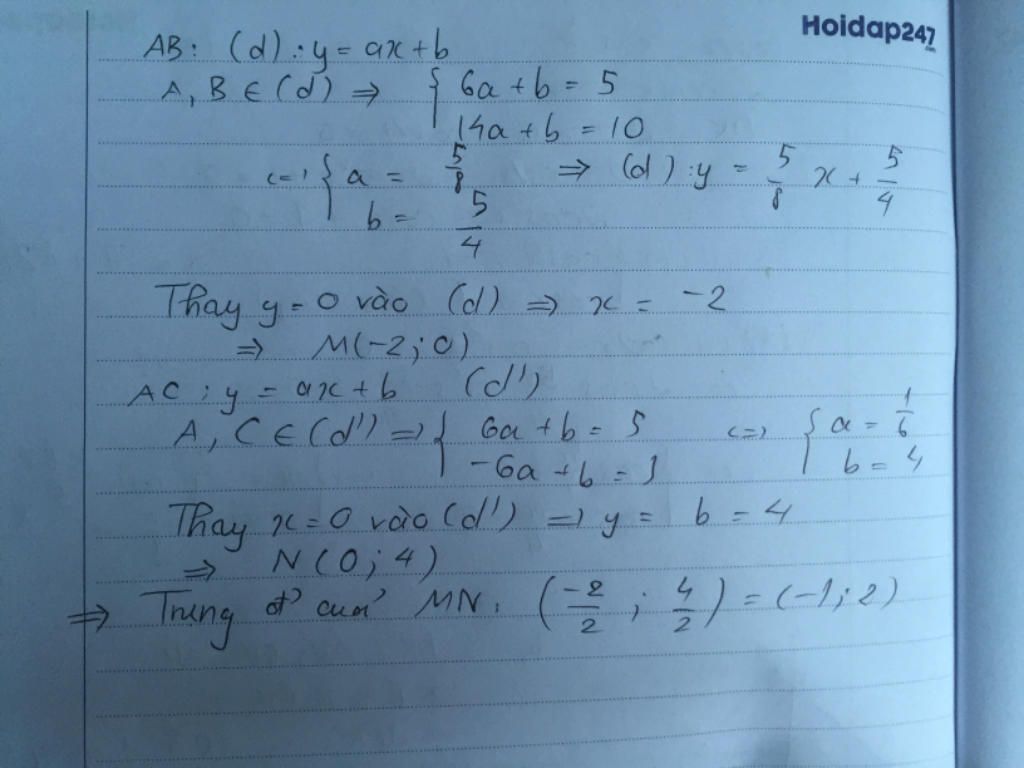 Hoidap247.com
AB: (d): y = ax + b
A, B ∈ (d) ⇒ { 6a + b = 5
14a + b = 10
<=> { a = 5/8 ⇒ (d): y = 5/8 x + 5/4
b = 5/4
Thay y = 0 vào (d) ⇒ x = -2
⇒ M(-2; 0)
AC: y = ax + b (d')
A, C ∈ (d') => { 6a + b = 5 <=> { a = 1/6
-6a + b = 3 b = 4
Thay x = 0 vào (d') => y = b = 4
⇒ N(0; 4)
⇒ Trung đ' của MN: (-2/2; 4/2) = (-1; 2)